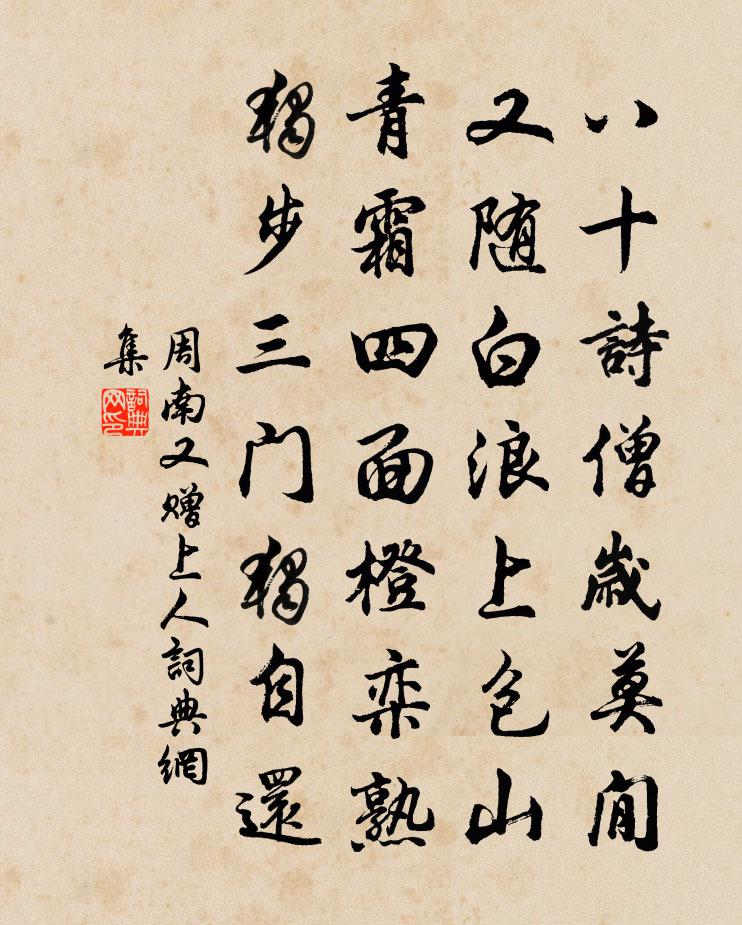 八十詩僧歲莫閒
又随白浪上包山
青霜四面橙栾熟
獨步三门獨自還
周南又贈上人詞典網
集
詞典网印